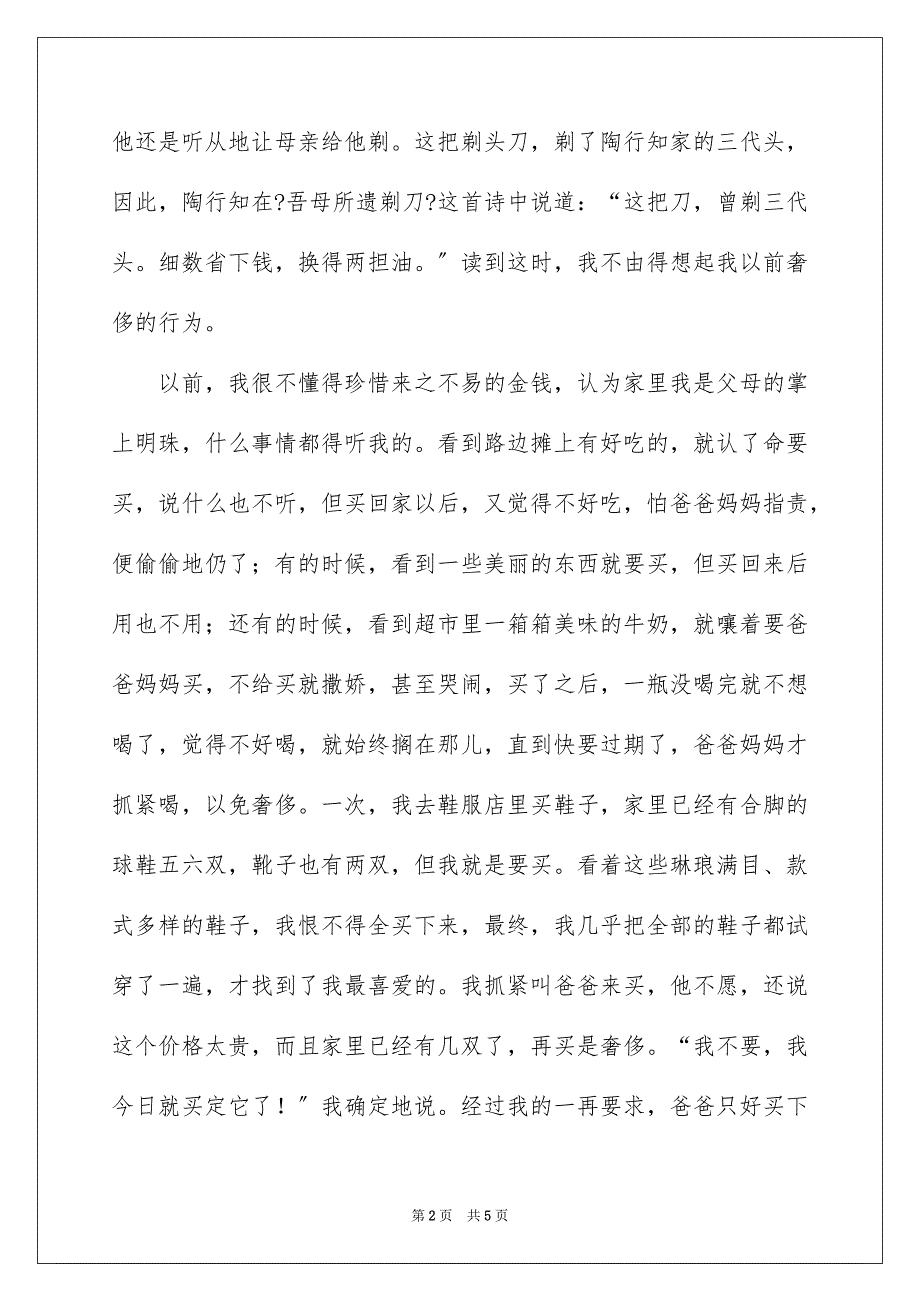 他还是听从地让母亲给他剃。这把剃头刀，剃了陶行知家的三代头，
因此，陶行知在?吾母所遗剃刀?这首诗中说道：“这把刀，曾剃三代
头。细数省下钱，换得两担油。〞读到这时，我不由得想起我以前奢
侈的行为。
以前，我很不懂得珍惜来之不易的金钱，认为家里我是父母的掌
上明珠，什么事情都得听我的。看到路边摊上有好吃的，就认了命要
买，说什么也不听，但买回家以后，又觉得不好吃，怕爸爸妈妈指责，
便偷偷地仍了；有的时候，看到一些美丽的东西就要买，但买回来后
用也不用；还有的时候，看到超市里一箱箱美味的牛奶，就嚷着要爸
爸妈妈买，不给买就撒娇，甚至哭闹，买了之后，一瓶没喝完就不想
喝了，觉得不好喝，就始终搁在那儿，直到快要过期了，爸爸妈妈才
抓紧喝，以免奢侈。一次，我去鞋服店里买鞋子，家里已经有合脚的
球鞋五六双，靴子也有两双，但我就是要买。看着这些琳琅满目、款
式多样的鞋子，我恨不得全买下来，最终，我几乎把全部的鞋子都试
穿了一遍，才找到了我最喜爱的。我抓紧叫爸爸来买，他不愿，还说
这个价格太贵，而且家里已经有几双了，再买是奢侈。“我不要，我
今日就买定它了！〞我确定地说。经过我的一再要求，爸爸只好买下
第 2 页 共 5 页